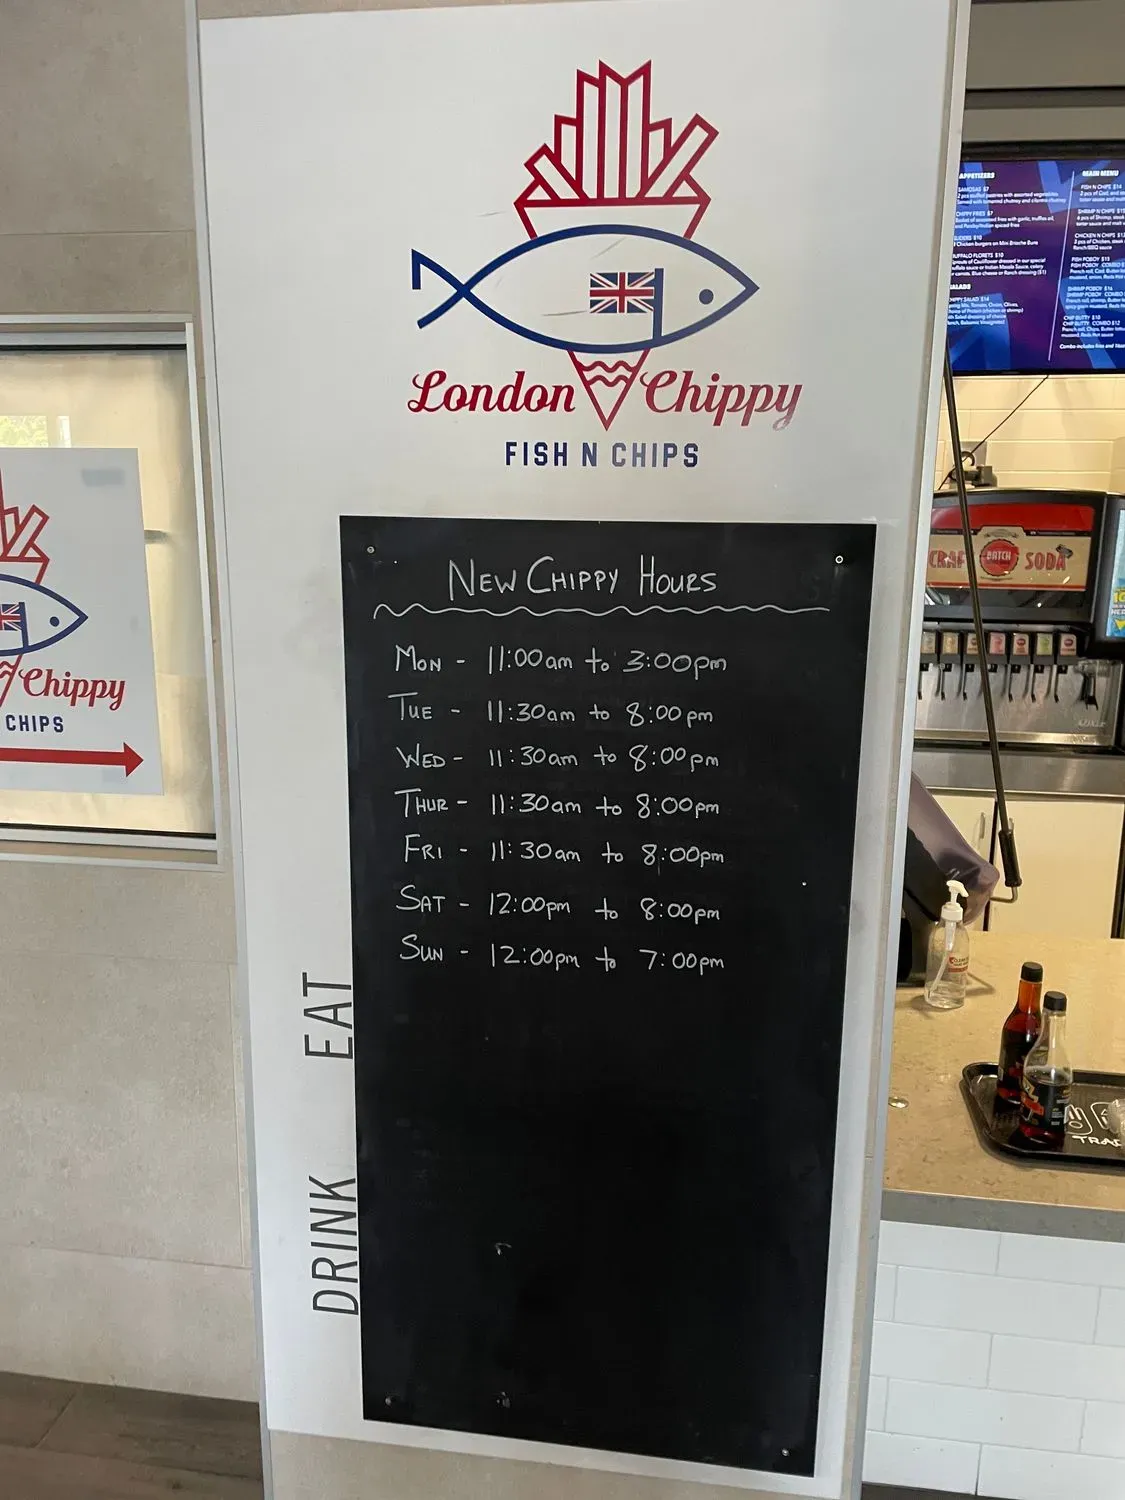 London Chippy
FISH N CHIPS
NEW CHIPPY HOURS
MON - 11:00am to 3:00pm
TUE - 11:30am to 8:00pm
WED - 11:30am to 8:00pm
THUR - 11:30am to 8:00pm
FRI - 11:30am to 8:00pm
SAT - 12:00pm to 8:00pm
SUN - 12:00pm to 7:00pm
EAT
DRINK
Chippy
CHIPS
APPETIZERS
SAMOSAS $7
CHIPPY FRIES $7
MAIN MENU
FISH N CHIPS $14
FISH POBOY $15
SHRIMP POBOY $16
CHIP BUTTY $10
CHIP BUTTY COMBO $12
CRAF
BATCH
SODA